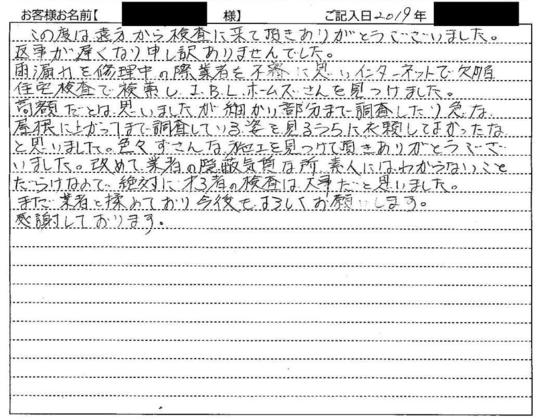 お客様お名前【　　様】　ご記入日2019年
この度は遠方から検査に来て頂きありがとうございました。
返事が遅くなり申し訳ありませんでした。
雨漏れを修理中の際業者を不審に思いインターネットで欠陥
住宅検査で検索しI.B.Lホームズさんを見つけました。
高額だとは思いましたが細かい部分まで調査したり急な
屋根に上がってまで調査している姿を見るうちに依頼してよかったな
と思いました。色々ずさんな施工を見つけて頂きありがとうござ
いました。改めて業者の隠蔽気質な所、素人にはわからないこと
だらけなので、絶対に第3者の検査は大事だと思いました。
まだ業者と揉めており今後もよろしくお願いします。
感謝しております。